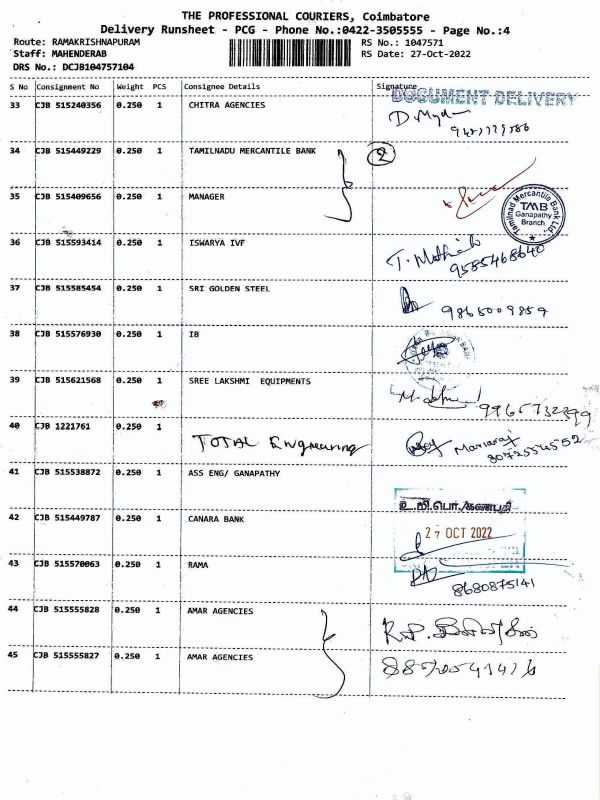 THE PROFESSIONAL COURIERS, Coimbatore
Delivery Runsheet - PCG - Phone No.:0422-3505555 - Page No.:4
Route: RAMAKRISHNAPURAM RS No.: 1047571
Staff: MAHENDERAB RS Date: 27-Oct-2022
DRS No.: DCJB104757104
S No Consignment No Weight PCS Consignee Details Signature
DOCUMENT DELIVERY
33 CJB 515240356 0.250 1 CHITRA AGENCIES
34 CJB 515449229 0.250 1 TAMILNADU MERCANTILE BANK 2
35 CJB 515409656 0.250 1 MANAGER
Tamilnad Mercantile Bank Ltd.
TMB
Ganapathy
Branch
36 CJB 515593414 0.250 1 ISWARYA IVF
9585468640
37 CJB 515585454 0.250 1 SRI GOLDEN STEEL
9865009859
38 CJB 515576930 0.250 1 IB
39 CJB 515621568 0.250 1 SREE LAKSHMI EQUIPMENTS
9965732399
40 CJB 1221761 0.250 1 TOTAL Engineering Mariaraj
8072554552
41 CJB 515538872 0.250 1 ASS ENG/ GANAPATHY
உ.மி.பொ./கணபதி
42 CJB 515449787 0.250 1 CANARA BANK
27 OCT 2022
43 CJB 515570063 0.250 1 RAMA
8680875141
44 CJB 515555828 0.250 1 AMAR AGENCIES
45 CJB 515555827 0.250 1 AMAR AGENCIES